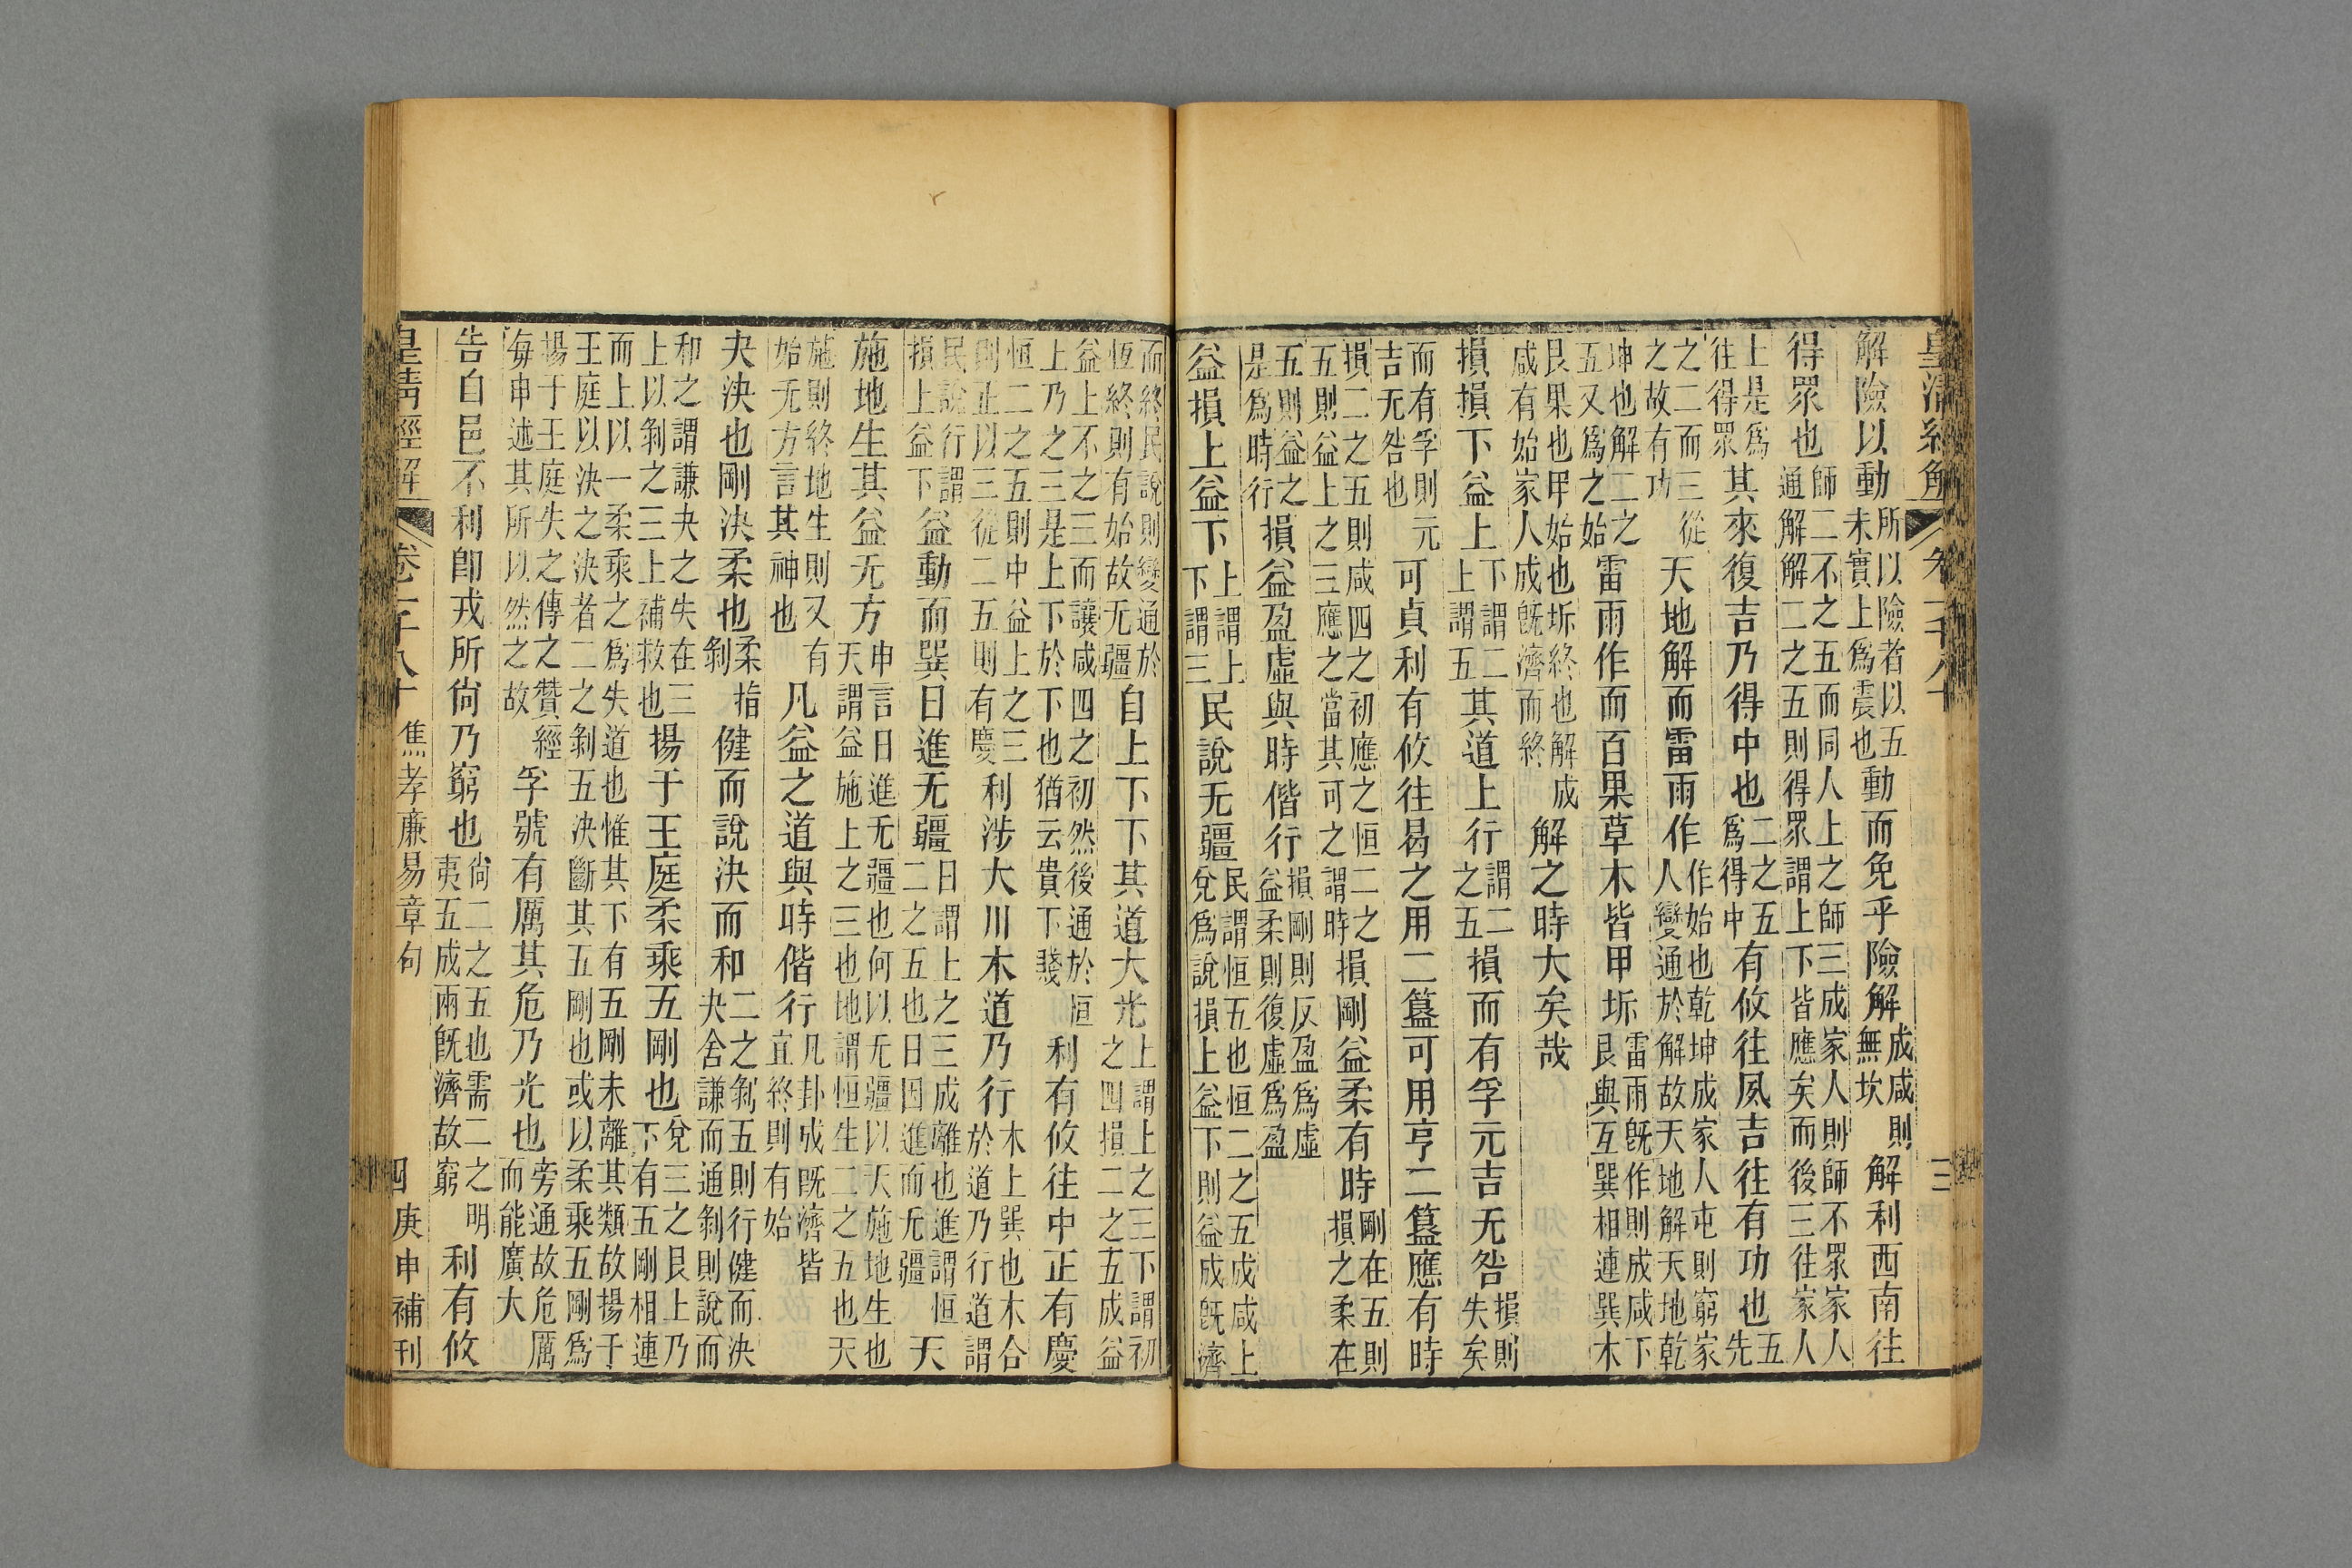 皇清經解 卷一千八十 三
解險以動所以險者以五未實上爲震也動而免乎險解成咸則無坎解利西南往
得眾也師二不之五而同人上之師三成家人則師不眾家人通解解二之五則得眾謂上下皆應矣而後三往家人
上是爲往得眾其來復吉乃得中也二之五爲得中有攸往夙吉往有功也五先
之二而三從之故有功天地解而雷雨作作始也乾坤成家人屯則窮家人變通於解故天地解天地乾
坤也解二之五又爲之始雷雨作而百果草木皆甲坼雷雨旣作則成咸下艮與互巽相連巽木
艮果也甲始也坼終也解成咸有始家人成旣濟而終解之時大矣哉
損損下益上下謂二上謂五其道上行謂二之五損而有孚元吉无咎損則失矣
而有孚則元吉无咎也可貞利有攸往曷之用二簋可用亨二簋應有時
損二之五則咸四之初應之恒二之五則益上之三應之當其可之謂時損剛益柔有時剛在五則損之柔在
五則益之是爲時行損益盈虛與時偕行損剛則反盈爲虛益柔則復虛爲盈
益損上益下上謂上下謂三民說无疆民謂恒五也恒二之五成咸上兌爲說損上益下則益成旣濟
而終民說則變通於恆終則有始故无疆自上下下其道大光上謂上之三下謂初之四損二之五成益
益上不之三而讓咸四之初然後通於恒上乃之三是上下於下也猶云貴下賤利有攸往中正有慶
恒二之五則中益上之三則正以三從二五則有慶利涉大川木道乃行木上巽也木合於道乃行道謂
民說行謂損上益下益動而巽日進无疆日謂上之三成離也進謂恒二之五也日因進而无疆天
施地生其益无方申言日進无疆也何以无疆以天施地生也天謂益施上之三也地謂恒生二之五也天
施則終地生則又有始无方言其神也凡益之道與時偕行凡卦成旣濟皆直終則有始
夬決也剛決柔也柔指剝健而說決而和二之剝五則行健而決夬舍謙而通剝則說而
和之謂謙夬之失在三上以剝之三上補救也揚于王庭柔乘五剛也兌三之艮上乃下有五剛相連
而上以一柔乘之爲失道也惟其下有五剛未離其類故揚于王庭以決之決者二之剝五決斷其五剛也或以柔乘五剛爲
揚于王庭失之傳之贊經每申述其所以然之故孚號有厲其危乃光也旁通故危厲而能廣大
告自邑不利卽戎所尙乃窮也尙二之五也需二之明夷五成兩旣濟故窮利有攸
皇清經解 卷一千八十 焦孝廉易章句 四 庚申補刊